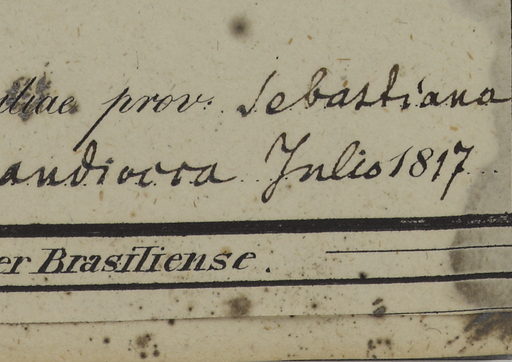 iliae prov: Sebastiana
andiocca Julio 1817
er Brasiliense.